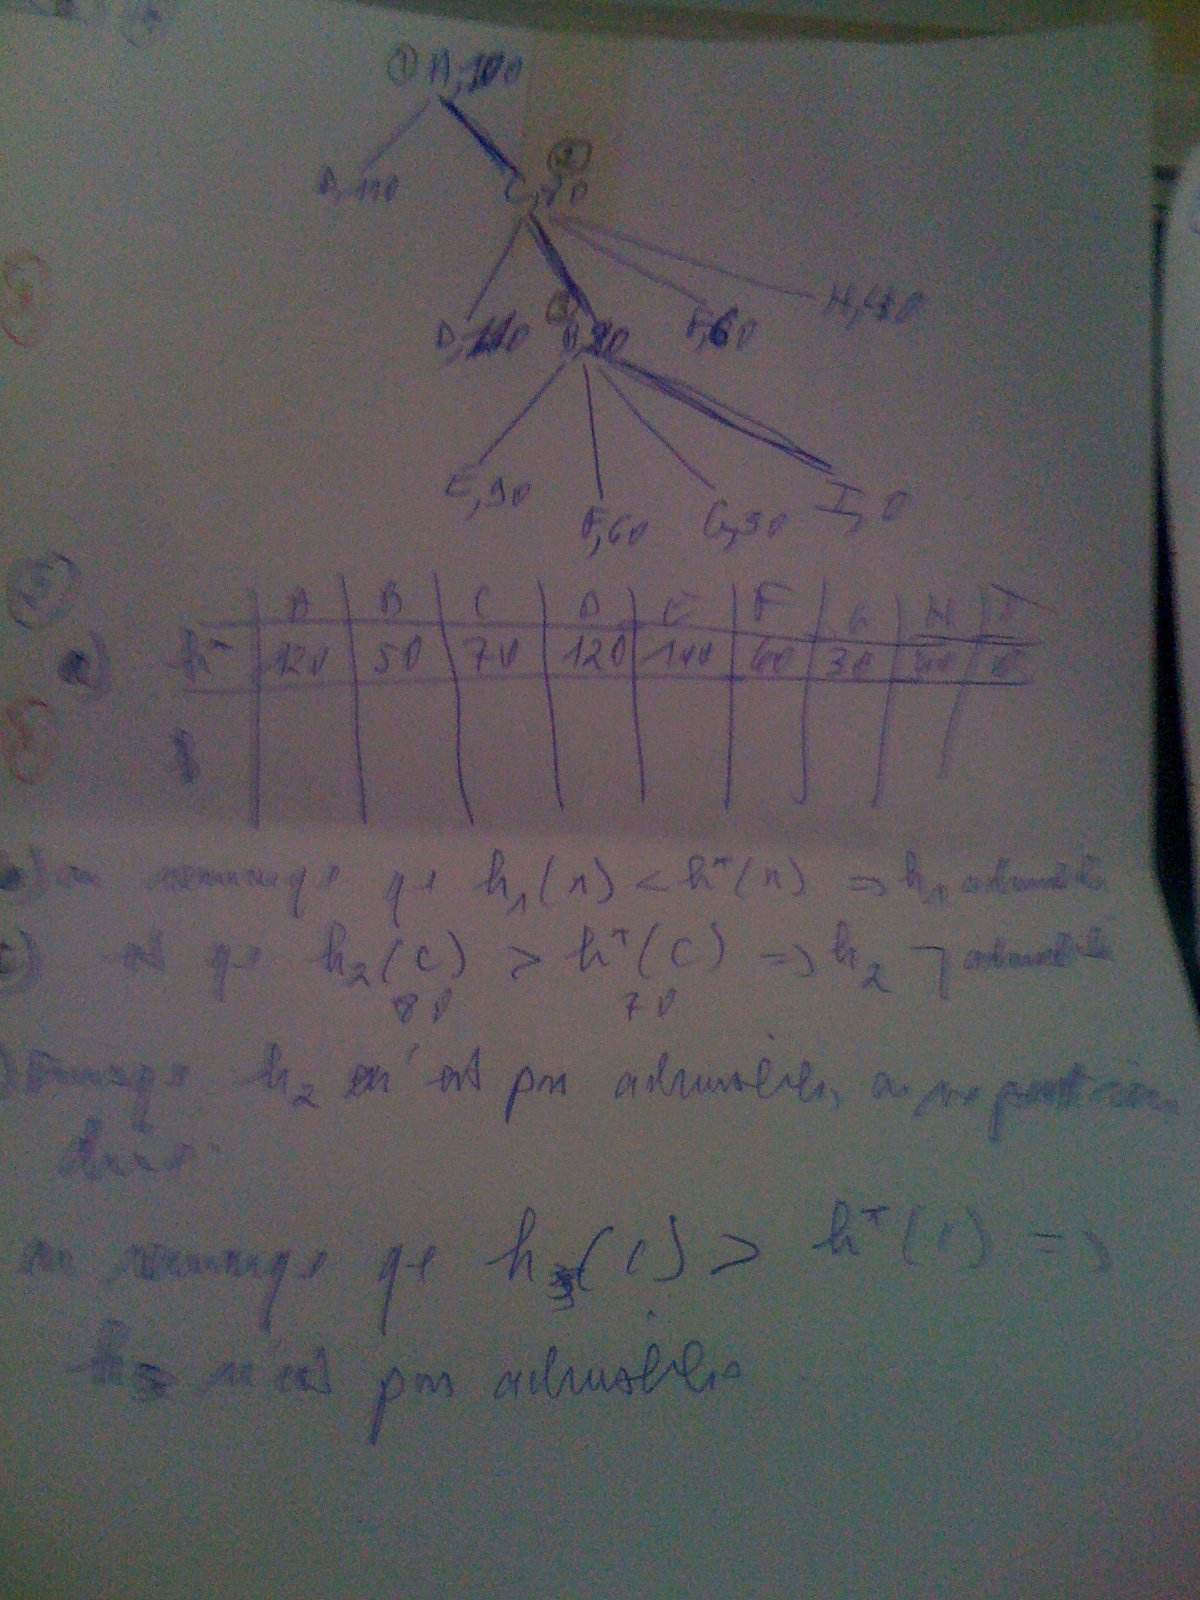 ① A,100
D,110
C,70
D,110
B,20
F,60
H,40
E,90
F,60
G,30
I, 0
A B C D E F G H I
a) h* 120 50 70 120 100 60 30 40 0
on remarque que h₁(n) < h*(n) ⇒ h₁ admissible
c) que h₂(C) > h*(C) ⇒ h₂ ¬ admissible
80 70
h₂ n'est pas admissible, on ne peut rien
dire.
on remarque que h₃(C) > h*(C) ⇒
h₃ n'est pas admissible